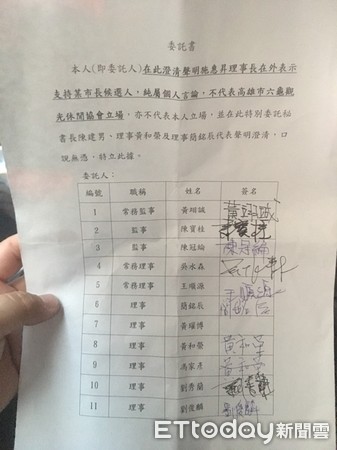 委託書
本人(即委託人)在此澄清聲明施惠昇理事長在外表示
支持某市長候選人，純屬個人言論，不代表高雄市六龜觀
光休閒協會立場，亦不代表本人立場，並在此特別委託秘
書長陳建男、理事黃和榮及理事簡銘辰代表聲明澄清，口
說無憑，特立此據。
委託人：
編號 職稱 姓名 簽名
1 常務監事 黃翊誠
2 監事 陳寶桂
3 監事 陳冠綸 陳冠綸
4 常務理事 吳水森
5 常務理事 王順源
6 理事 簡銘辰
7 理事 黃耀博
8 理事 黃和榮 黃和榮
9 理事 馮家彥
10 理事 劉香蘭
11 理事 劉俊麟
ETtoday新聞雲